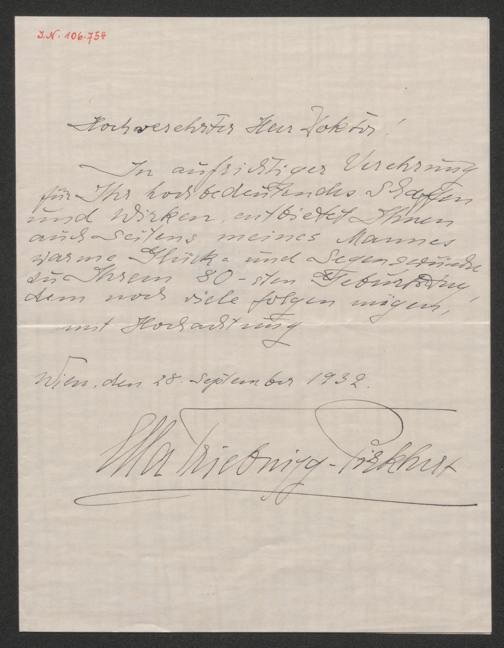 I.N. 106.754
Hochverehrter Herr Doktor!
In aufrichtiger Verehrung
für Ihr hochbedeutendes Schaffen
und Wirken, entbietet Ihnen
auch seitens meines Mannes
warme Glück- und Segenswünsche
zu Ihrem 80-sten Geburtstag,
dem noch viele folgen mögen,
mit Hochachtung
Wien, den 28. September 1932.
Ella Triebnigg-Pirkhert